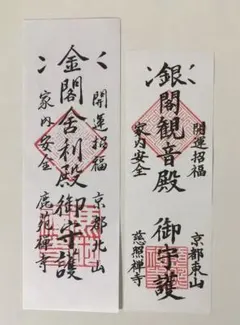 開運招福
京都北山
金閣舎利殿御守護
家内安全
鹿苑禅寺
開運招福
京都東山
銀閣観音殿
御守護
家内安全
慈照禅寺